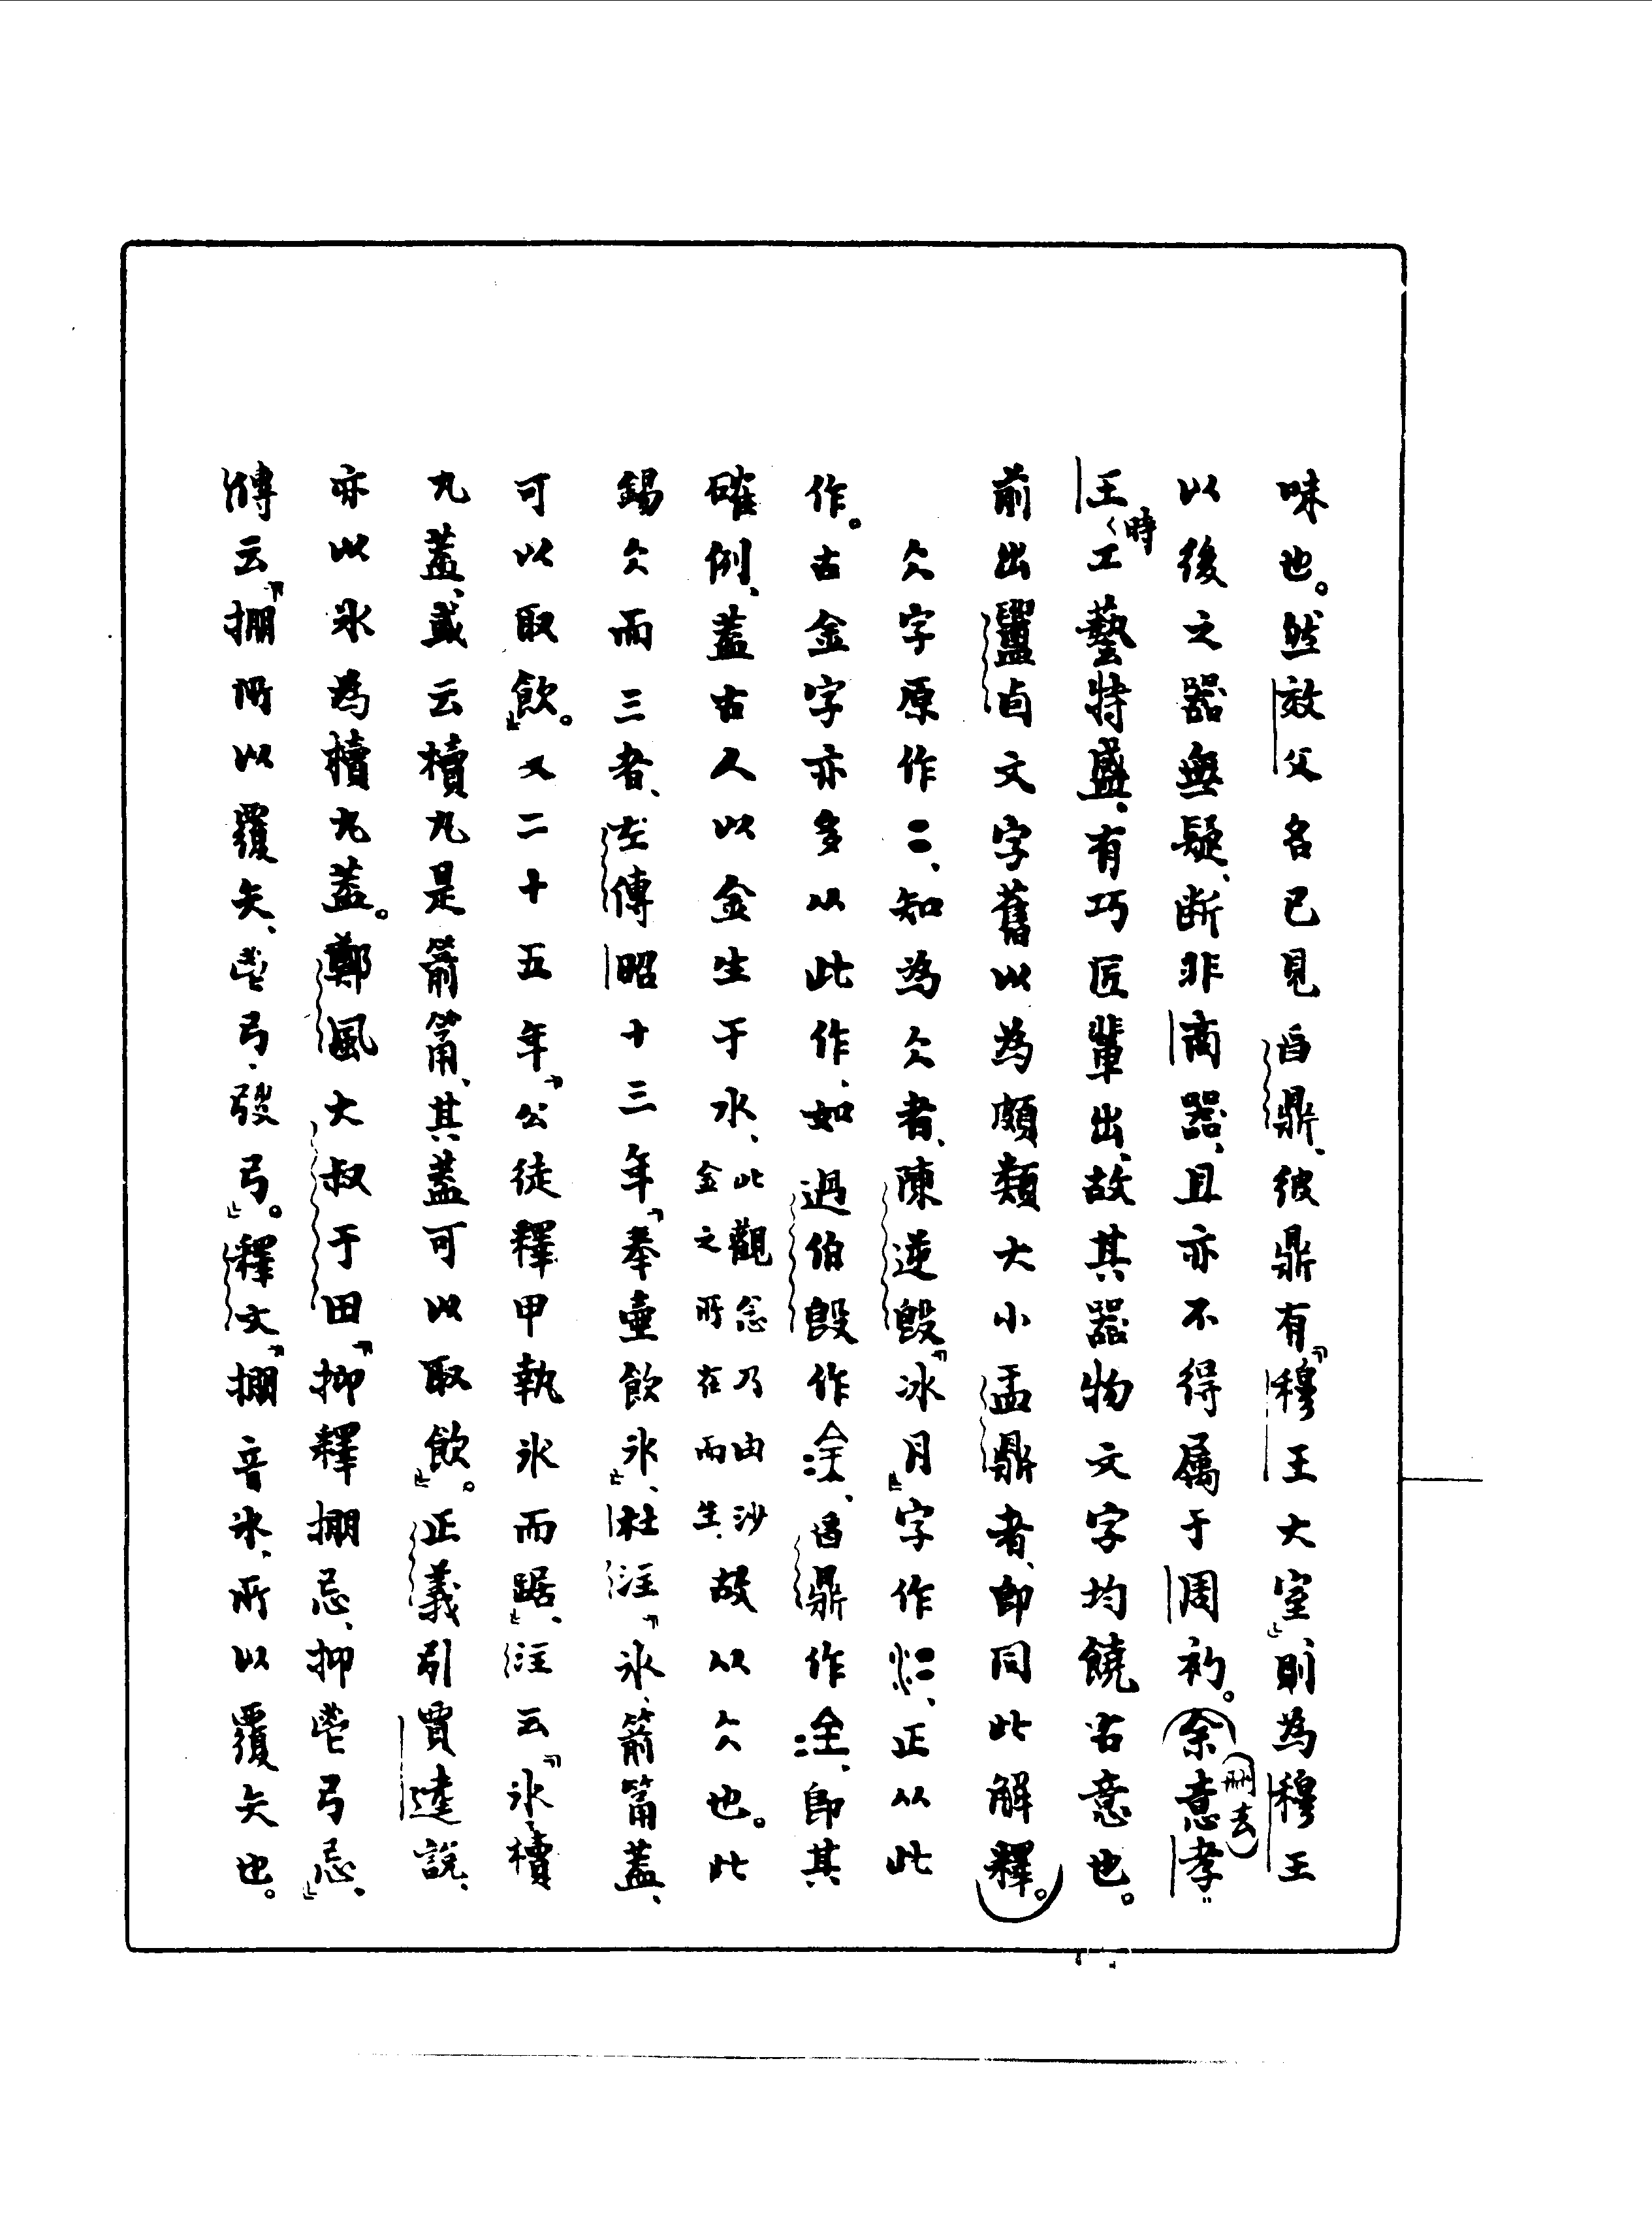 味也。然效父名已見曶鼎、彼鼎有『穆王大室』、則為穆王
以後之器無疑、断非商器、且亦不得属于周初。(余意孝〃
(刪去)
王時工藝特盛、有巧匠輩出、故其器物文字均饒古意也。
前出卣文字舊以為頗類大小盂鼎者、即同此解釋。)
仌字原作、知為仌者、陳逆𣪘『冰月』字作、正从此
作。古金字亦多从此作、如過伯𣪘作、曶鼎作、即其
確例、蓋古人以金生于水、此觀念乃由沙金之所在而生、故从仌也。此
錫仌而三者、左傳昭十三年『奉壷飲氷』、杜注『氷、箭筩蓋、
可以取飲』。又二十五年『公徒釋甲執氷而踞』、注云『氷、櫝
丸蓋、或云櫝丸是箭筩、其蓋可以取飲』。正義引賈逵説、
亦以氷為櫝丸蓋。鄭風大叔于田『抑釋掤忌、抑鬯弓忌』、
傳云『掤所以覆矢、鬯弓、弢弓』。釋文『掤音氷、所以覆矢也。